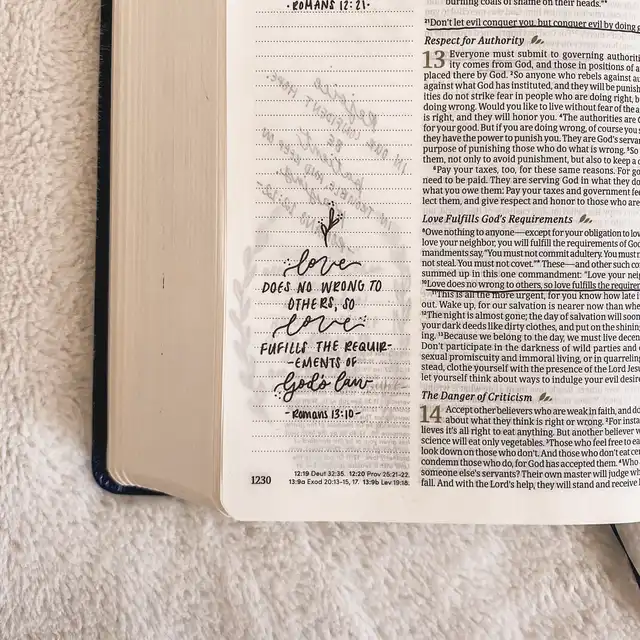 ·ROMANS 12:21·
love
DOES NO WRONG TO
OTHERS, SO
love
FUFILLS THE REQUIR-
-EMENTS OF
God's law
-Romans 13:10-
1230
12:19 Deut 32:35. 12:20 Prov 25:21-22.
13:9a Exod 20:13-15, 17. 13:9b Lev 19:18.
burning coals of shame on their heads."*
21Don't let evil conquer you, but conquer evil by doing
Respect for Authority
13 Everyone must submit to governing authorit
ity comes from God, and those in positions of a
placed there by God. 2So anyone who rebels against au
against what God has instituted, and they will be punish
ities do not strike fear in people who are doing right, b
doing wrong. Would you like to live without fear of the a
is right, and they will honor you. 4The authorities are G
for your good. But if you are doing wrong, of course you
they have the power to punish you. They are God's serva
purpose of punishing those who do what is wrong. 5So
them, not only to avoid punishment, but also to keep a c
6Pay your taxes, too, for these same reasons. For go
need to be paid. They are serving God in what they do
what you owe them: Pay your taxes and government fee
lect them, and give respect and honor to those who are
Love Fulfills God's Requirements
8Owe nothing to anyone—except for your obligation to lov
love your neighbor, you will fulfill the requirements of Go
mandments say, "You must not commit adultery. You must n
not steal. You must not covet."* These—and other such
summed up in this one commandment: "Love your neig
10Love does no wrong to others, so love fulfills the require
11This is all the more urgent, for you know how late i
out. Wake up, for our salvation is nearer now than whe
12The night is almost gone; the day of salvation will soon
your dark deeds like dirty clothes, and put on the shinin
ing. 13Because we belong to the day, we must live decen
Don't participate in the darkness of wild parties and
sexual promiscuity and immoral living, or in quarreling
stead, clothe yourself with the presence of the Lord Jesu
let yourself think about ways to indulge your evil desir
The Danger of Criticism
14 Accept other believers who are weak in faith, and do
about what they think is right or wrong. 2For insta
lieves it's all right to eat anything. But another believer w
science will eat only vegetables. 3Those who feel free to ea
look down on those who don't. And those who don't eat cer
condemn those who do, for God has accepted them. 4Who
someone else's servants? Their own master will judge wh
fall. And with the Lord's help, they will stand and receive